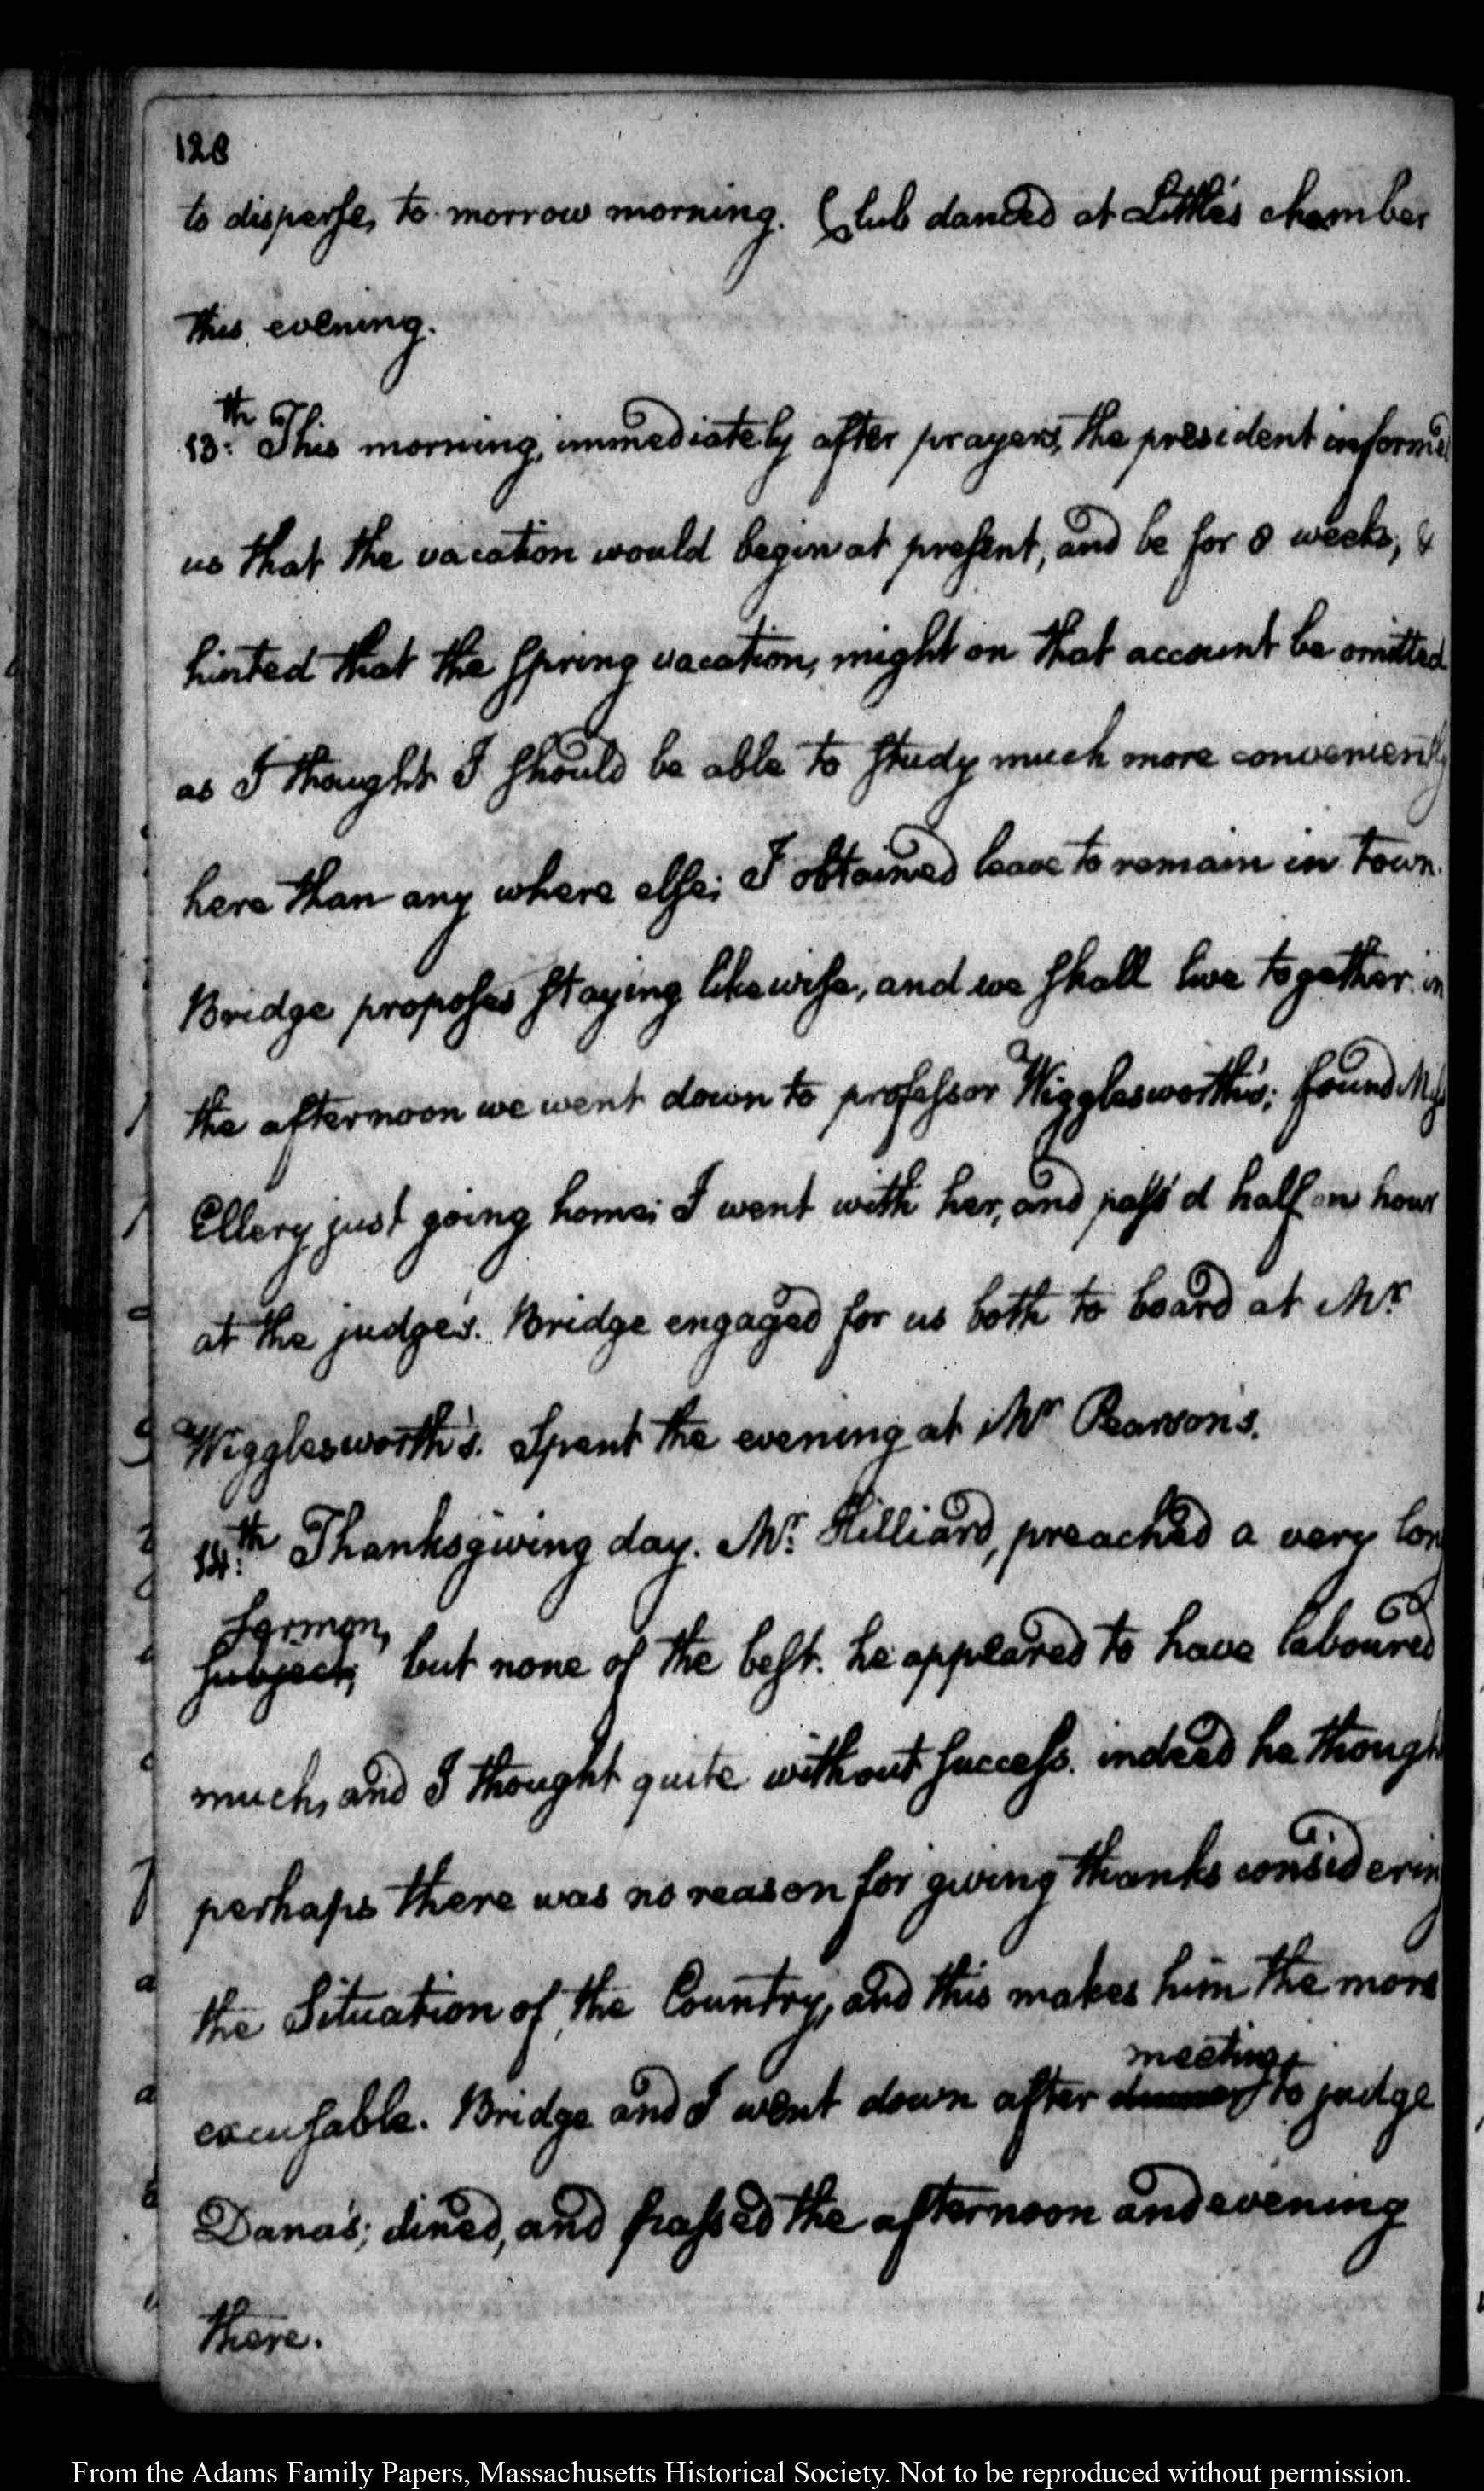 128
to disperse, to morrow morning. Club danced at Little's chamber
this evening.
13.th This morning, immediately after prayers, the president inform'd
us that the vacation would begin at present, and be for 8 weeks; &
hinted that the Spring vacation, might on that account be omitted
as I thought I should be able to study much more conveniently
here than any where else; I obtained leave to remain in town.
Bridge proposes staying likewise, and we shall live together. in
the afternoon we went down to professor Wigglesworth's; found Miss
Ellery just going home; I went with her, and pass'd half an hour
at the judge's. Bridge engaged for us both to board at Mr.
Wigglesworth's. Spent the evening at Mr Pearson's.
14.th Thanksgiving day. Mr. Hilliard, preached a very lon
Sermon,
subject, but none of the best. he appeared to have laboured
much, and I thought quite without success. indeed he though
perhaps there was no reason for giving thanks considerin
the Situation of the Country, and this makes him the more
meeting
excusable. Bridge and I went down after dinner to judge
Dana's; dined, and passed the afternoon and evening
there.
From the Adams Family Papers, Massachusetts Historical Society. Not to be reproduced without permission.